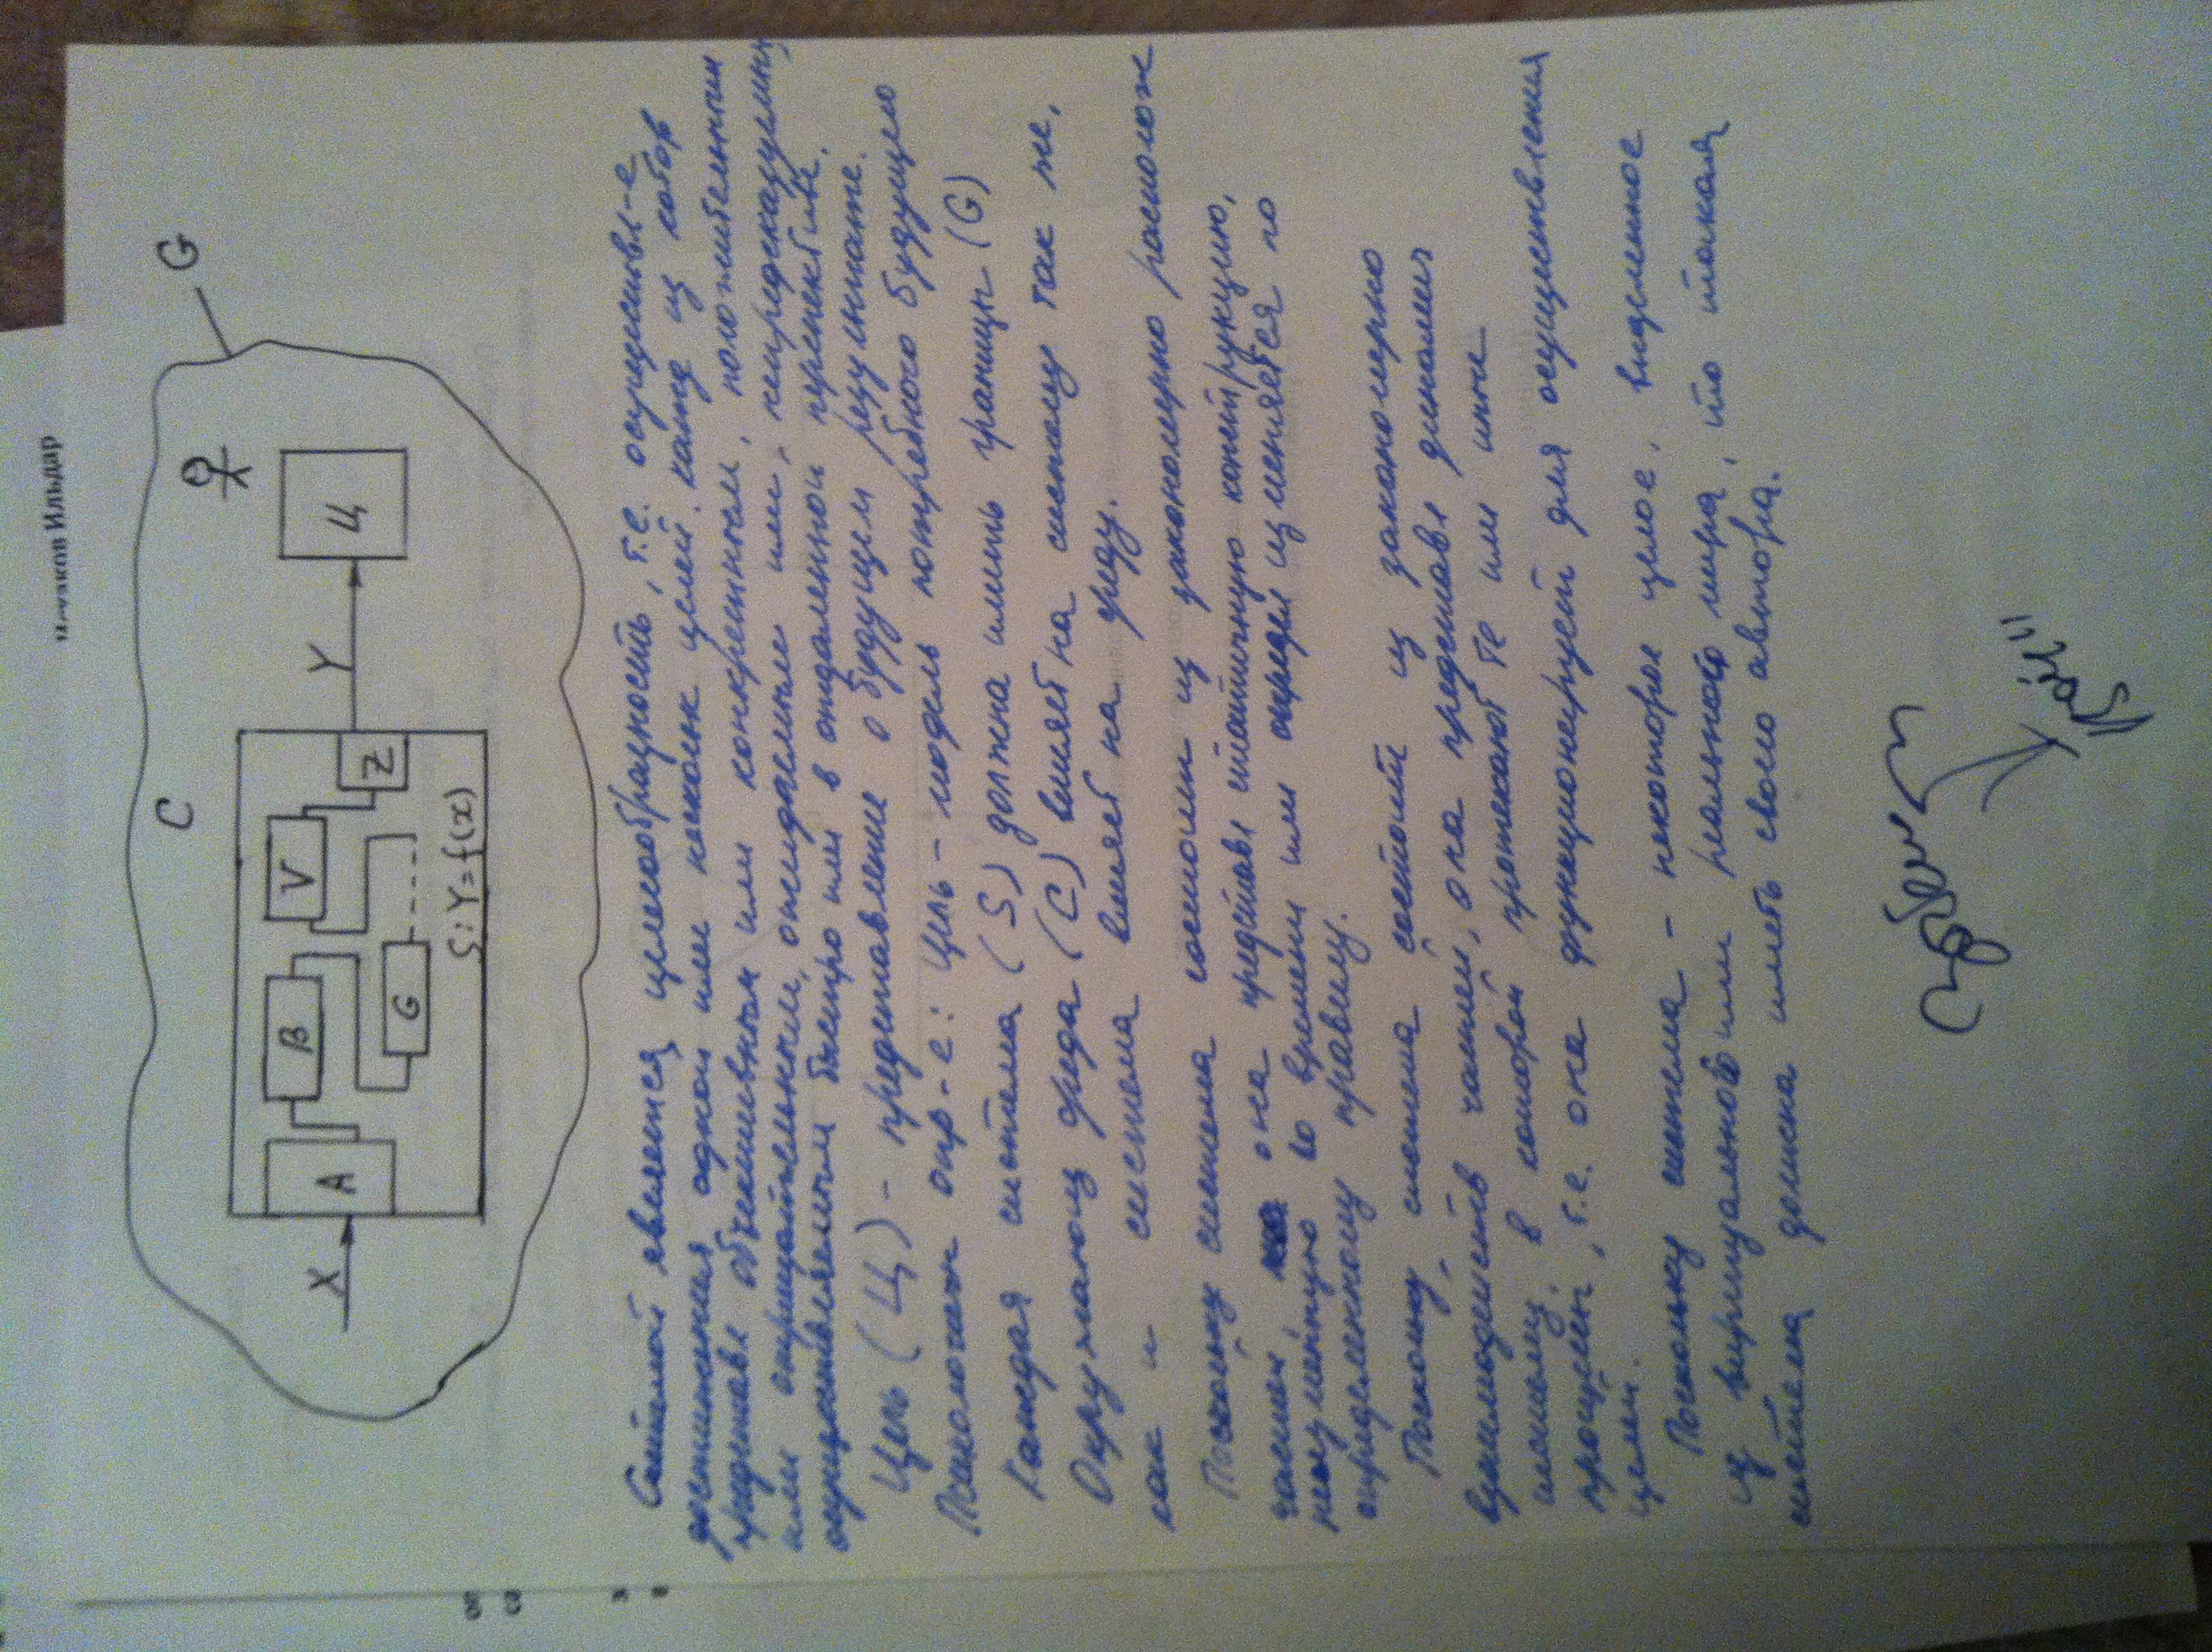 Ильдар
C
G
X
A
B
V
G
Z
Y
Ц
S: Y=f(x)
Системой является целесообразность, т.е. осуществл-е
достижения одной или нескольк целей, кажд из котор
представл объективным или конкретным, положительным
или отрицательным, ожидаемым или, непредсказуемым,
осуществляемым быстро или в отдаленной перспективе.
Цель (Ц) - представление о будущем результате.
Психологическ опр-е: Цель - модель потребного будущего
Каждая система (S) должна иметь границы (G)
Окружающ среда (C) влияет на систему так же,
как и система влияет на среду.
Поскольку система состоит из закономерно располож
частей, она представл статичную конструкцию,
неизменную во времени или изменяется по
определенному правилу.
Поскольку система состоит из закономерно
взаимодейств частей, она представл динамич
систему в которой протекают те или иные
процессы, т.е. она функционирует для осуществления
целей.
Поскольку система - некоторое целое, выделенное
из виртуального или реального мира, то такая
система должна иметь своего автора.